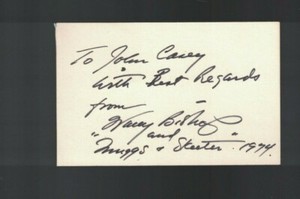 To John Casey
with Best Regards
from
Wally Bishop
and
"Muggs & Skeeter" 1974.